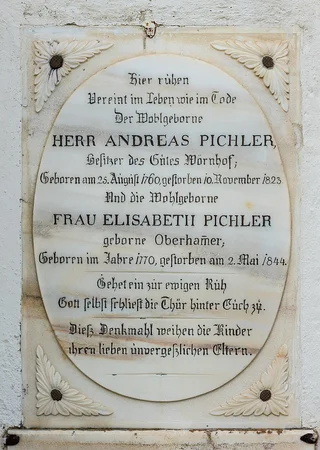 Hier rühen
Vereint im Leben wie im Tode
Der Wohlgeborne
HERR ANDREAS PICHLER,
Besitzer des Gütes Wörnhof;
Geboren am 25. Augüst 1760, gestorben 10. November 1823
Und die Wohlgeborne
FRAU ELISABETH PICHLER
geborne Oberham̅er;
Geboren im Jahre 1770, gestorben am 2. Mai 1844.
Gehet ein zür ewigen Rüh
Gott selbst schliest die Thür hinter Eüch zü.
Dieß Denkmahl weihen die Kinder
ihren lieben ünvergeßlichen Eltern.